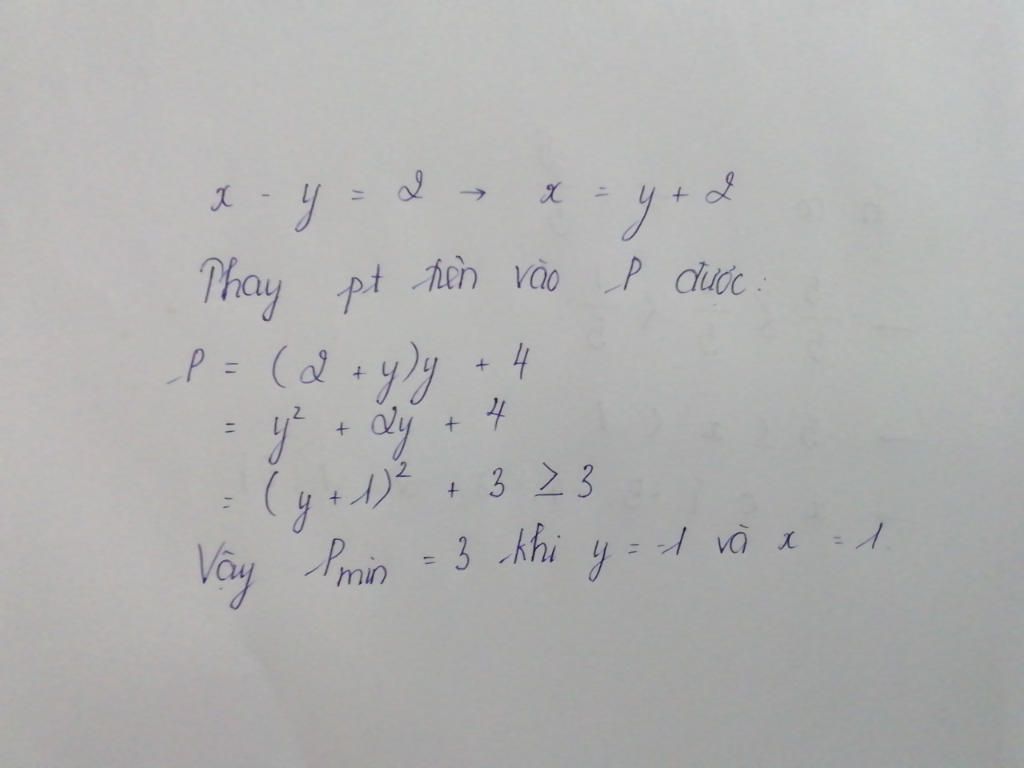 x - y = 2 → x = y + 2
Thay pt trên vào P được:
P = (2 + y)y + 4
= y² + 2y + 4
= (y + 1)² + 3 ≥ 3
Vậy Pmin = 3 khi y = -1 và x = 1